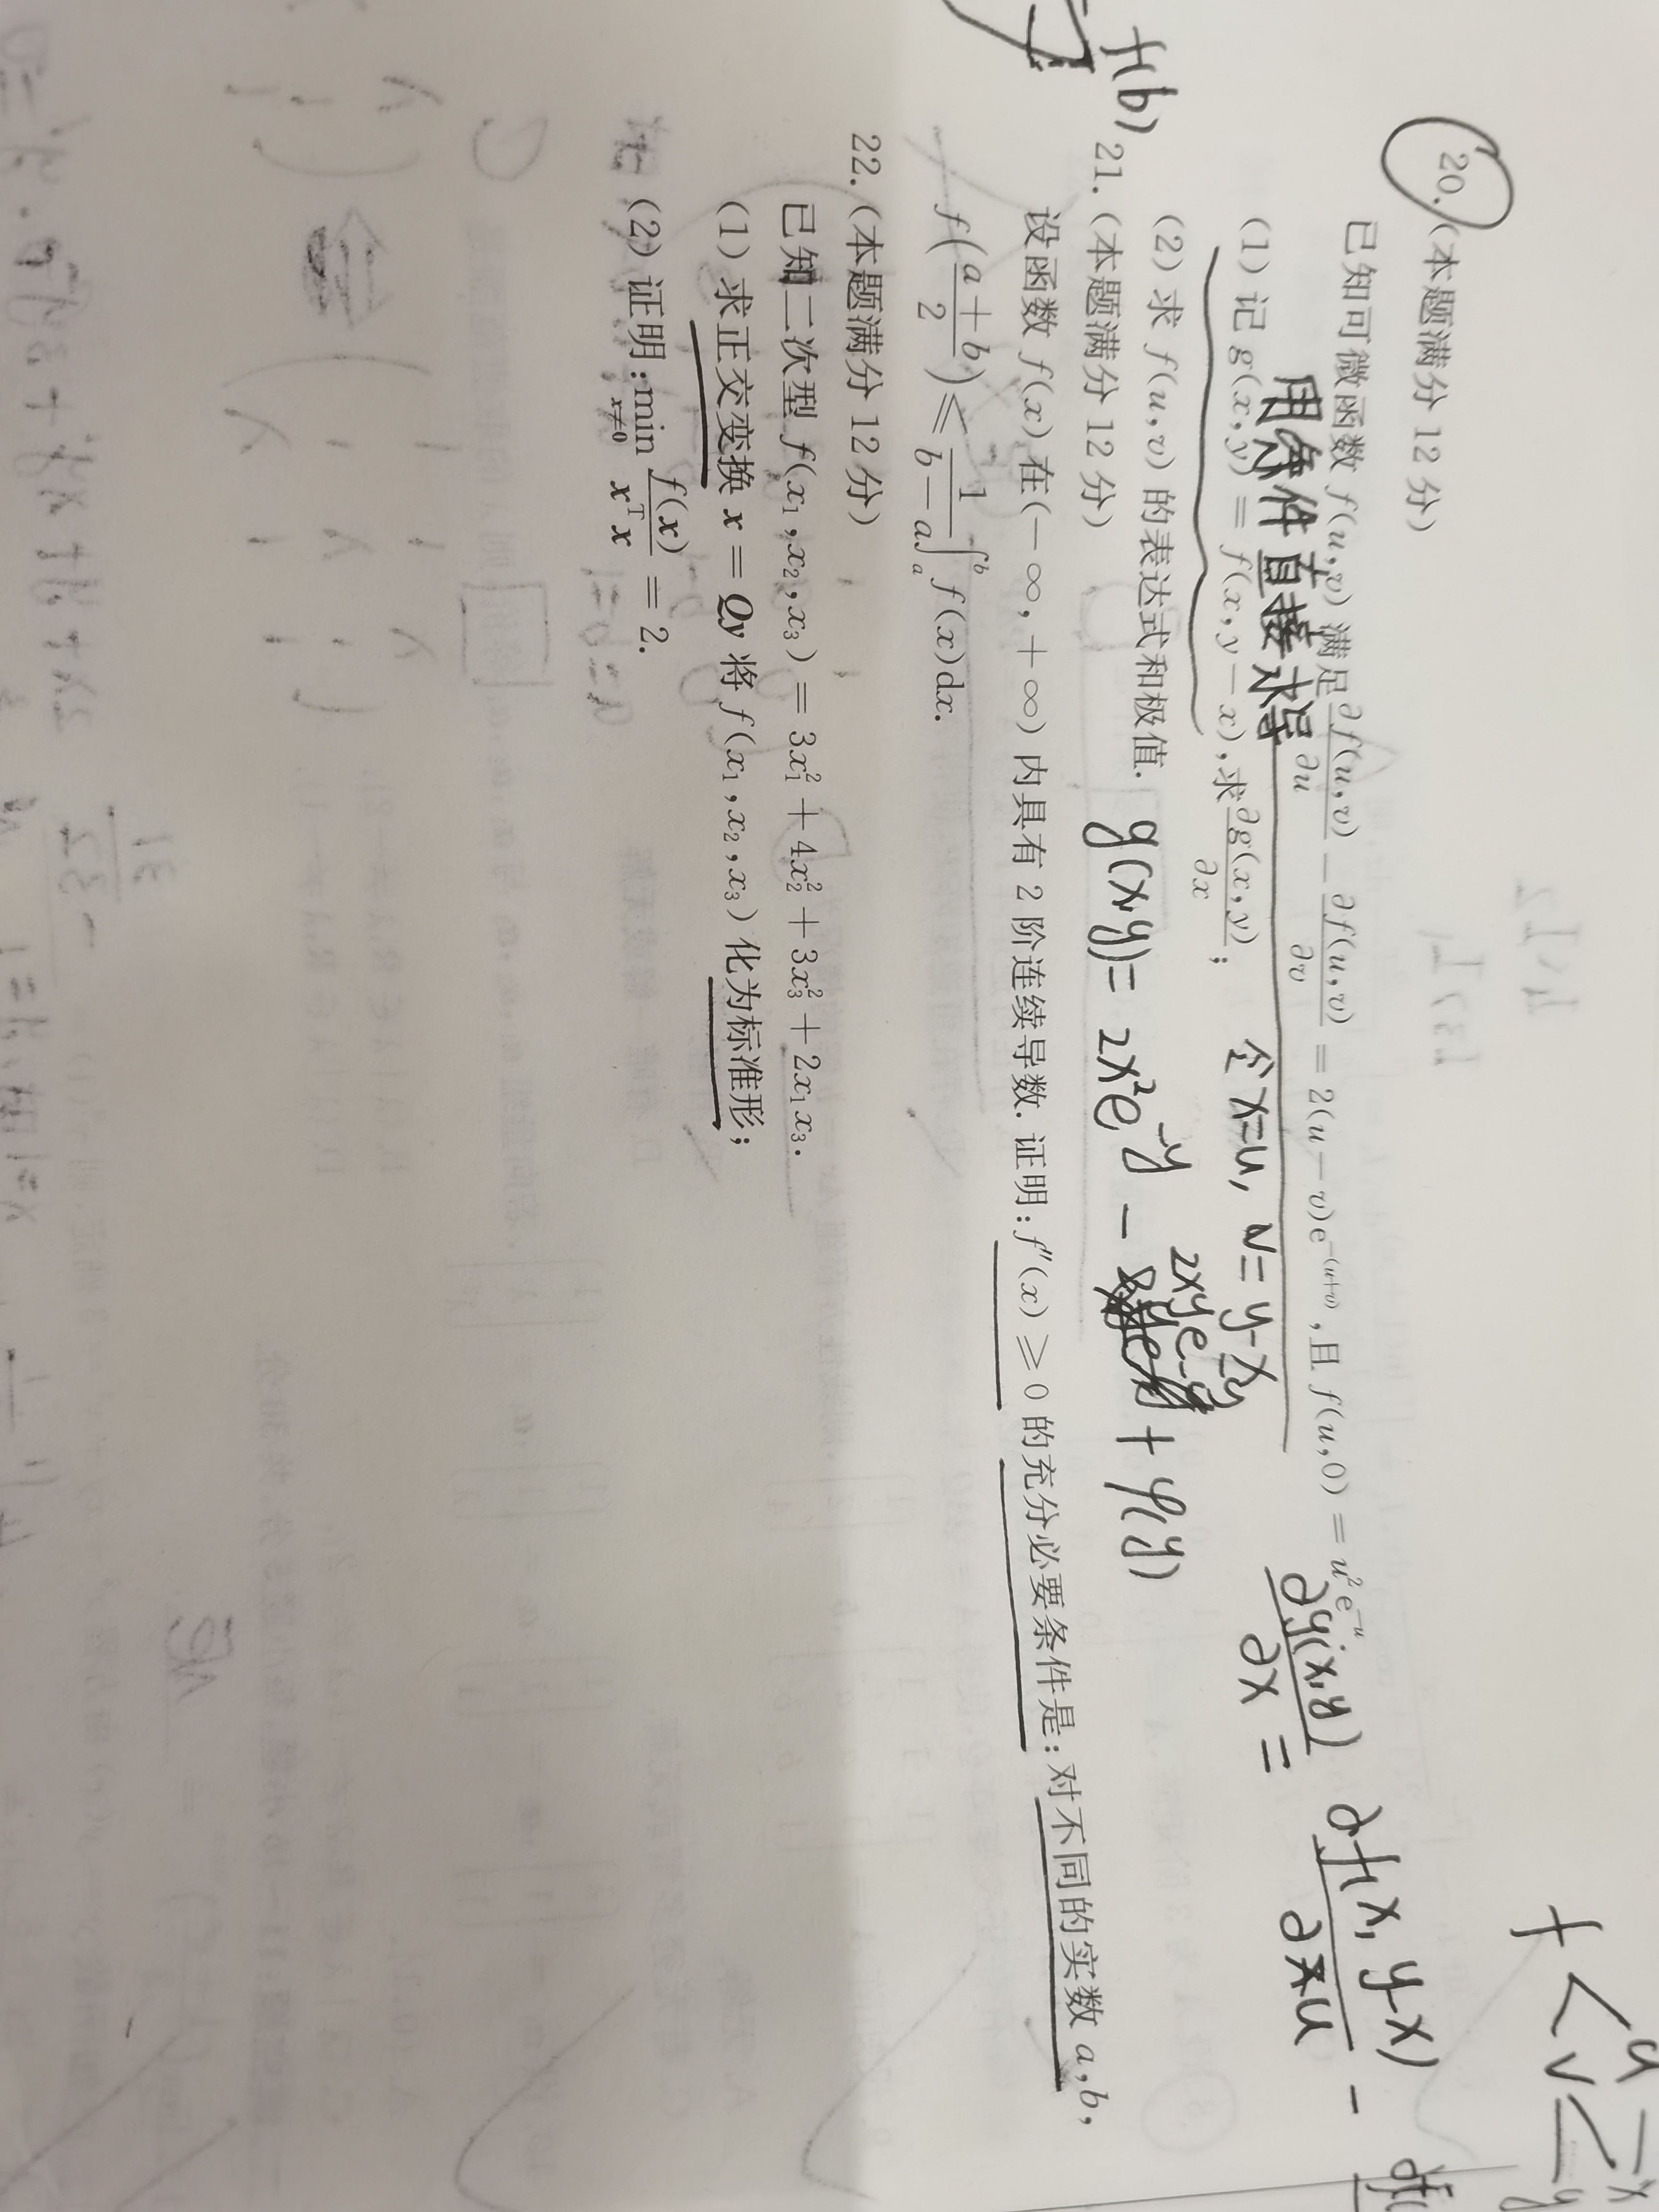 20.(本题满分 12 分)
已知可微函数 f(u,v) 满足 ∂f(u,v)/∂u − ∂f(u,v)/∂v = 2(u − v)e^{−(u+v)}, 且 f(u,0) = u²e^{−u}
用条件直接求导
(1) 记 g(x,y) = f(x,y − x), 求 ∂g(x,y)/∂x;
令 x=u, v=y-x
∂g(x,y)/∂x = ∂f(x,y-x)/∂u −
(2) 求 f(u,v) 的表达式和极值.
g(x,y)= 2x²e^{-y} − 2xye^{-y} + φ(y)
f(b)
21.(本题满分 12 分)
设函数 f(x) 在(− ∞, + ∞) 内具有 2 阶连续导数. 证明: f″(x) ≥ 0 的充分必要条件是: 对不同的实数 a,b,
f((a + b)/2) ≤ 1/(b − a) ∫_a^b f(x)dx.
22.(本题满分 12 分)
已知二次型 f(x₁,x₂,x₃) = 3x₁² + 4x₂² + 3x₃² + 2x₁x₃.
(1) 求正交变换 x = Qy 将 f(x₁,x₂,x₃) 化为标准形;
(2) 证明: min_{x≠0} f(x)/xᵀx = 2.